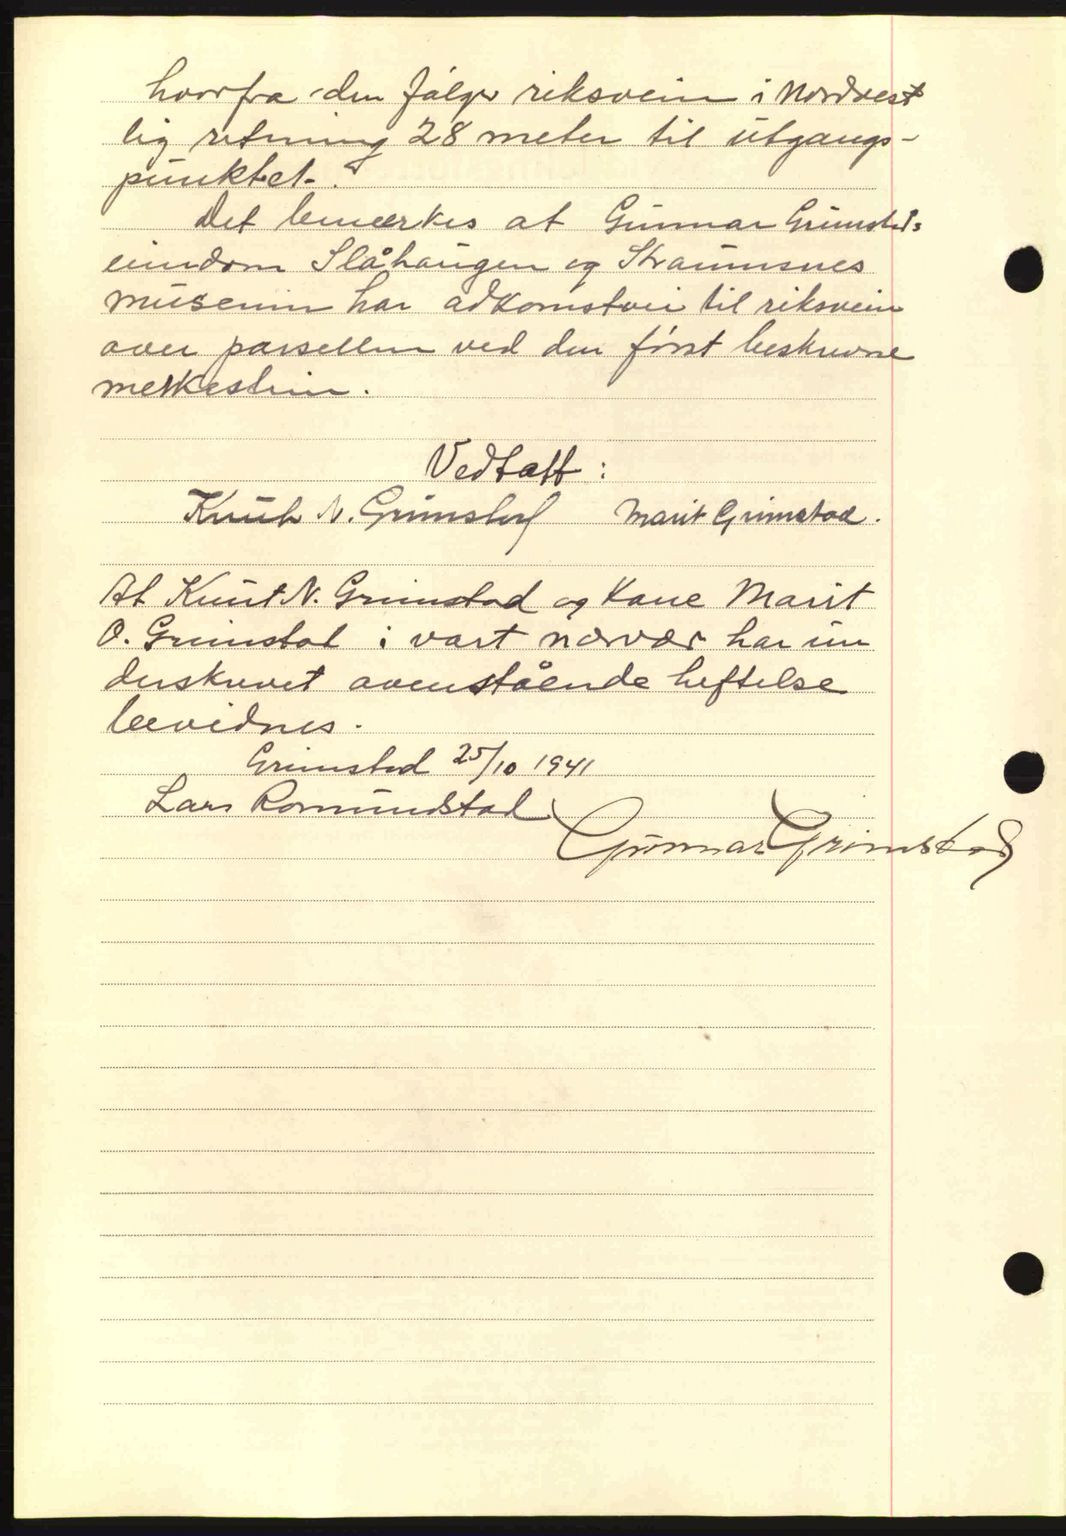 hvorfra den følger riksveien i Nordvest
lig retning 28 meter til utgangs-
punktet.
Det bemerkes at Gunnar Grimstads
eiendom Slåhaugen og Straumsnes
museum har adkomstvei til riksveien
over parsellen ved den først beskrevne
merkestein.
Vedtatt:
Knut N. Grimstad Marit Grimstad.
At Knut N. Grimstad og Kone Marit
O. Grimstad i vart nærvær har un
derskrevet ovenstående heftelse
bevidnes.
Grimstad 25/10 1941
Lars Romundstad
Gunnar Grimstad